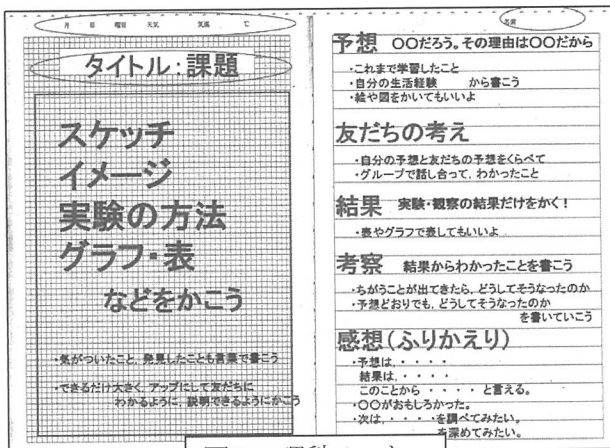 月 日 曜日 天気 気温 ℃
タイトル:課題
スケッチ
イメージ
実験の方法
グラフ・表
などをかこう
・気がついたこと、発見したことも言葉で書こう
・できるだけ大きく、アップにして友だちに
わかるように、説明できるようにかこう
名前
予想 〇〇だろう。その理由は〇〇だから
・これまで学習したこと
・自分の生活経験 から書こう
・絵や図をかいてもいいよ
友だちの考え
・自分の予想と友だちの予想をくらべて
・グループで話し合って、わかったこと
結果 実験・観察の結果だけをかく!
・表やグラフで表してもいいよ
考察 結果からわかったことを書こう
・ちがうことが出てきたら、どうしてそうなったのか
・予想どおりでも、どうしてそうなったのか
を書いていこう
感想(ふりかえり)
・予想は、・・・・
結果は、・・・・
このことから ・・・・ と言える。
・〇〇がおもしろかった。
・次は、・・・・を調べてみたい。
を深めてみたい。